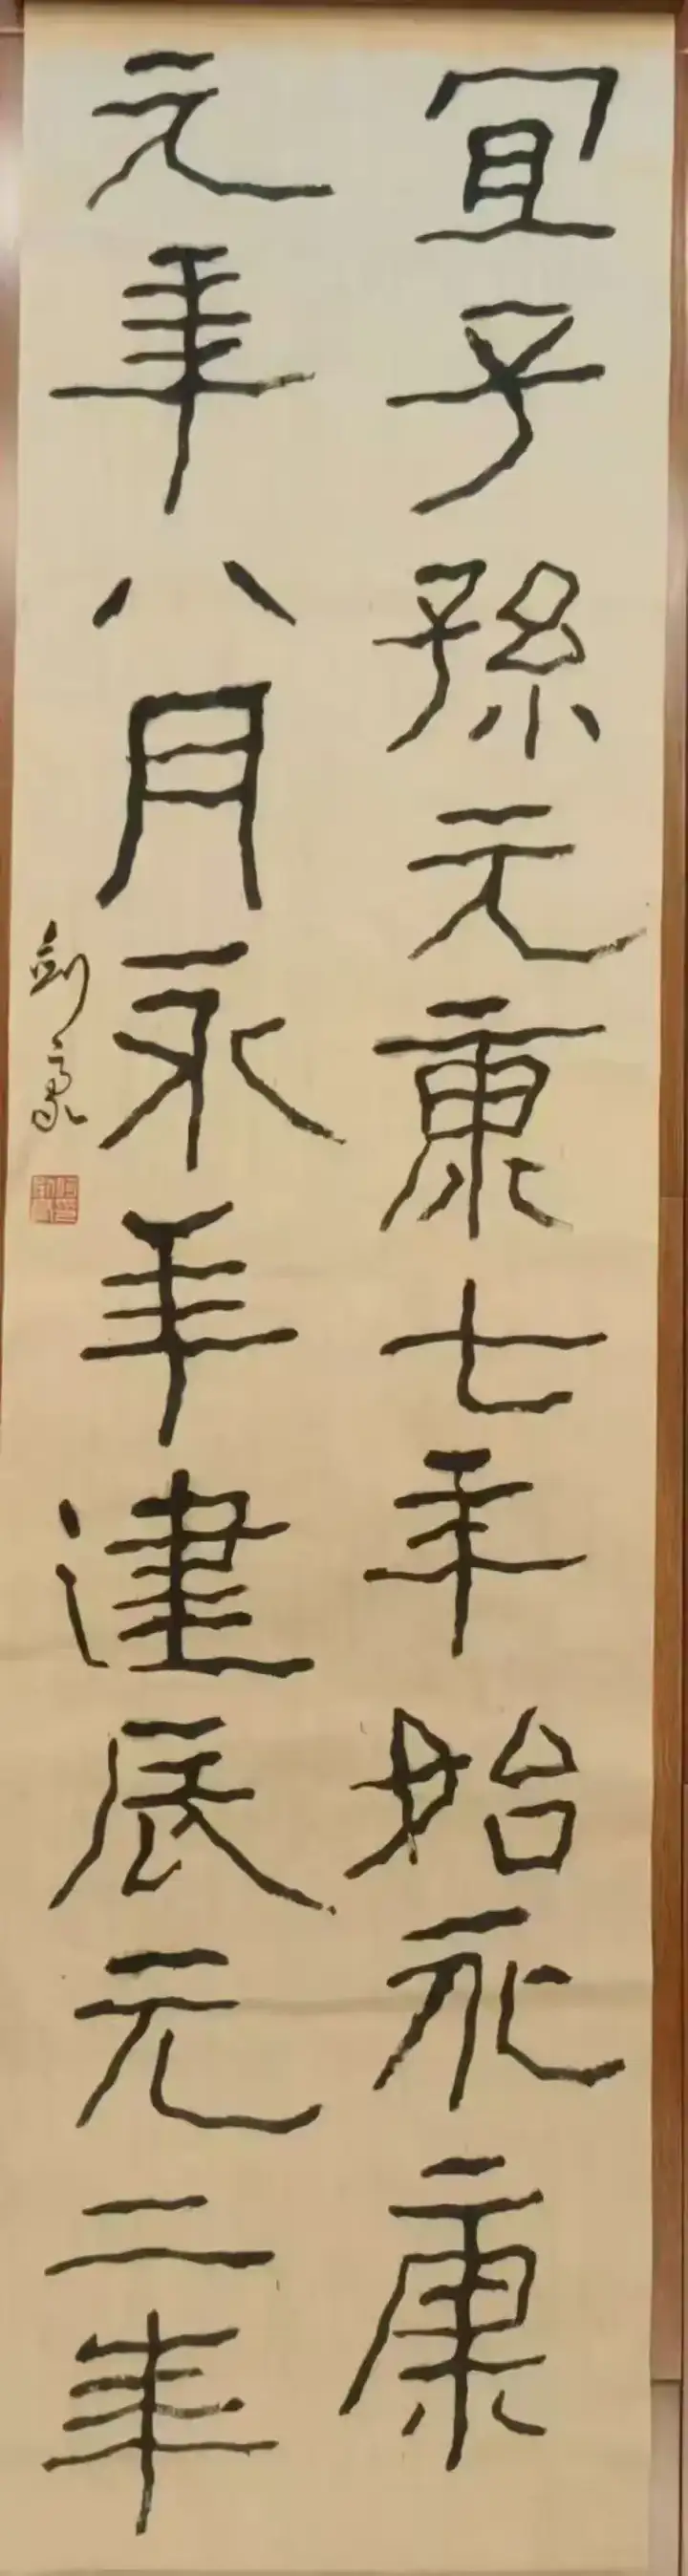 宜子孫元康七年始永康
元年八月永年建辰元二年
剑豪